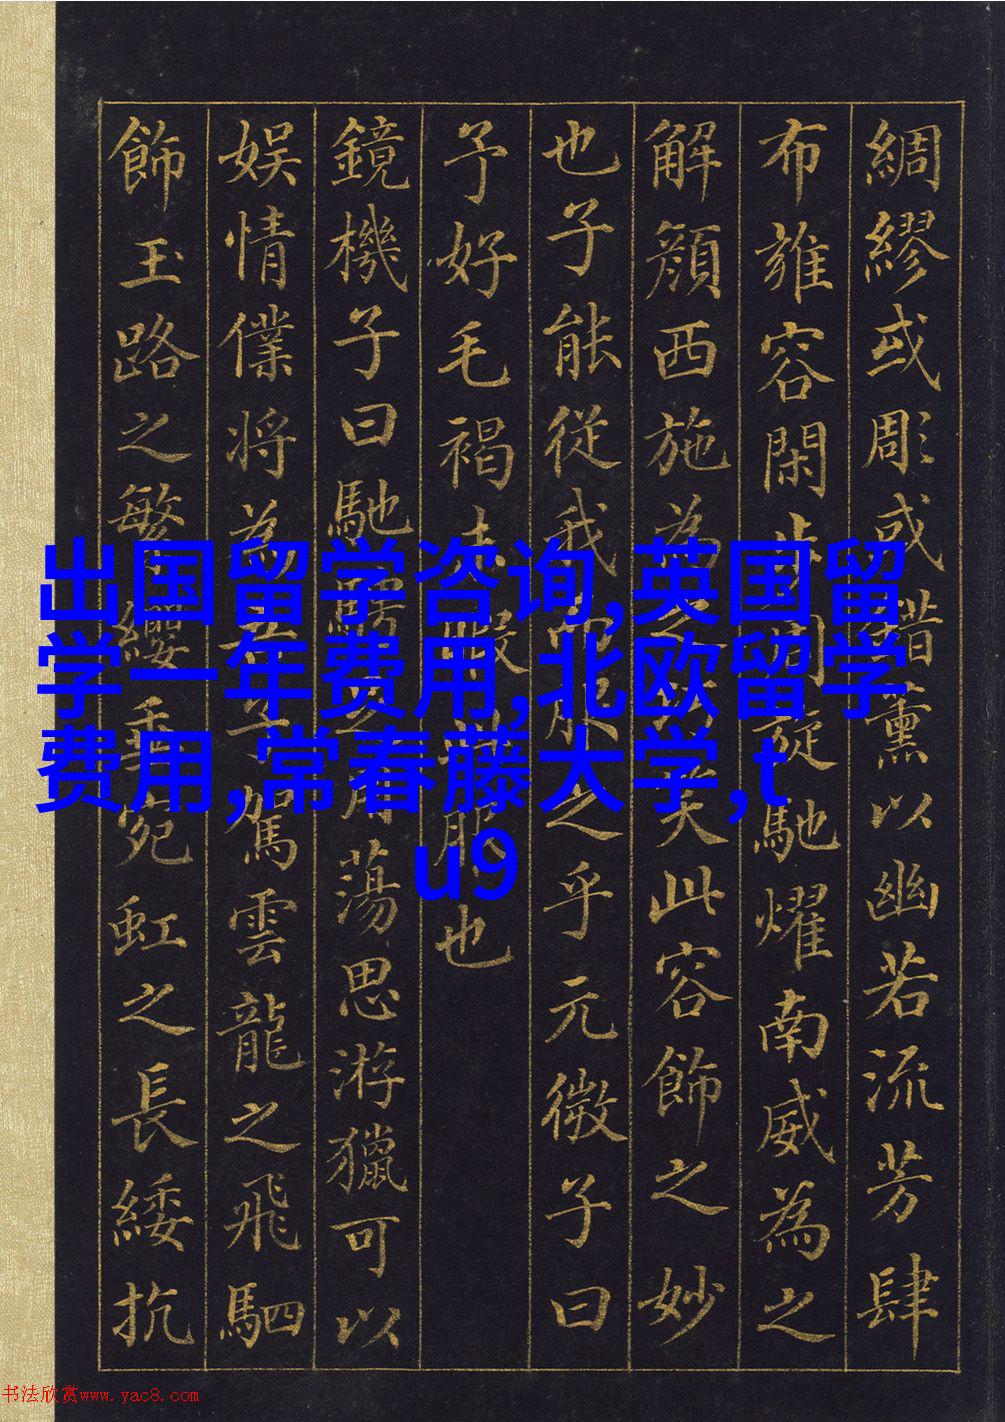 綢繆或彫或錯薰以幽若流芳肆
布雍容閑步周旋馳燿南威為之
解顏西施為之巧笑此容飾之妙
也子能從我而服之乎元微子曰
予好毛褐未暇此服也
鏡機子曰馳騁足用蕩思游獵可以
娛情僕將為吾子駕雲龍之飛駟
飾玉路之繁纓垂宛虹之長緌抗
出国留学咨询,英国留
学一年费用,北欧留学
费用,常春藤大学,t
u9
书法欣赏www.yac8.com